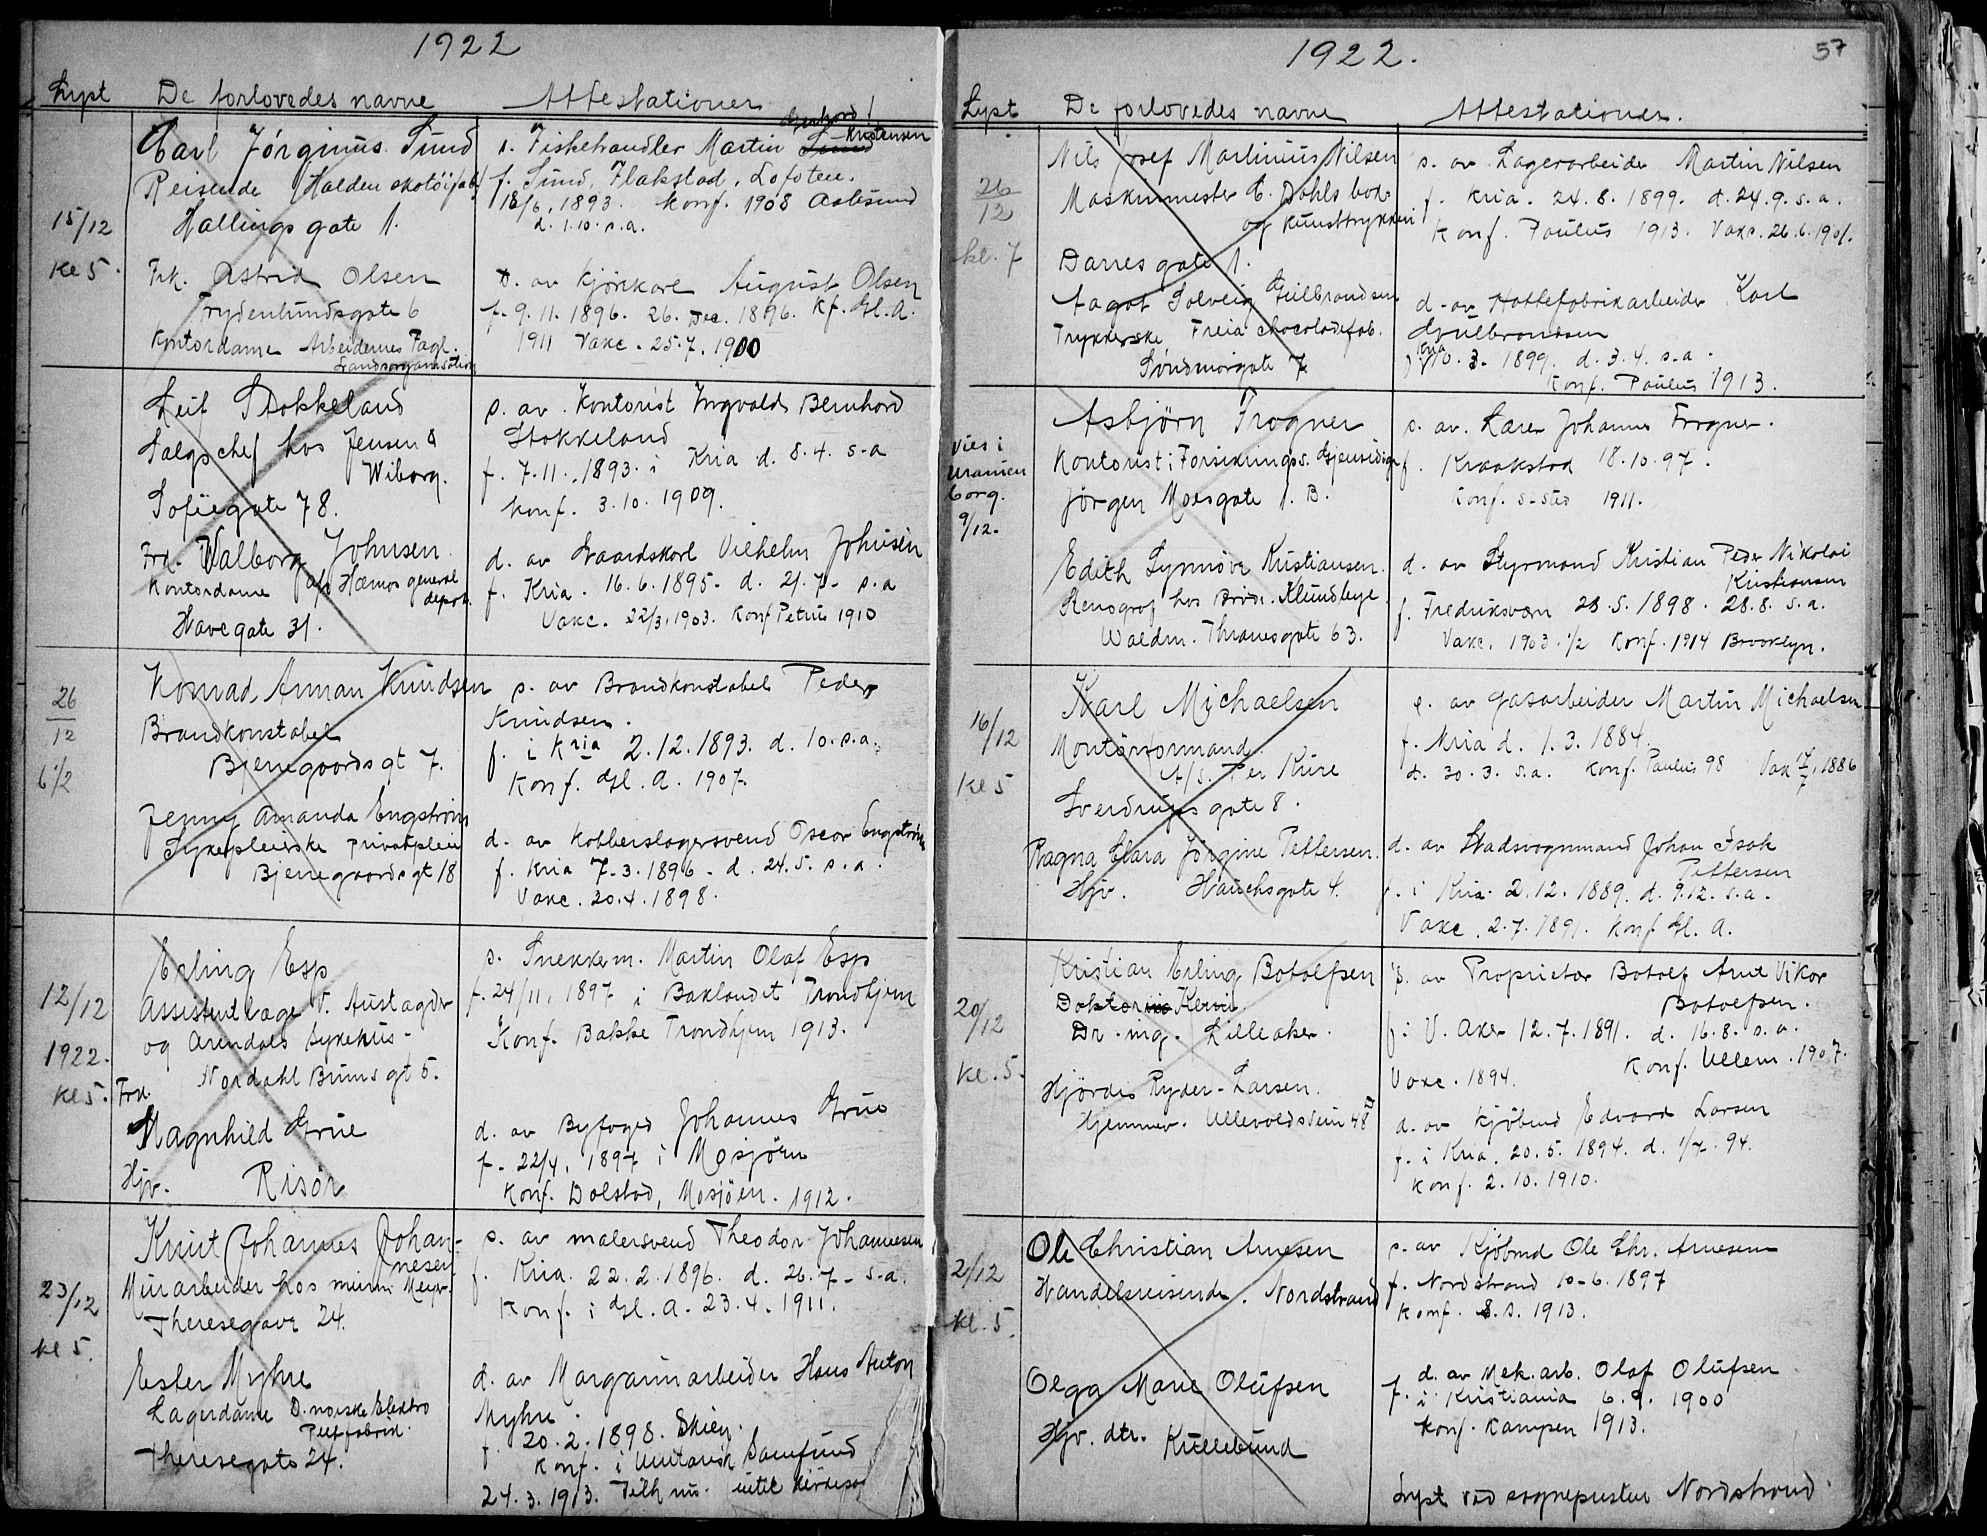 1922
Lyst De forlovedes navne Attestationer
Carl Jörginus Sund
Reisende Halden skotöifab.
Hallings gate 1.
15/12
Kl 5.
Frk. Astrid Olsen
Frydenlundsgate 6
Kontordame Arbeidernes Fagl.
Landsorganisation
s. Fiskehandler Martin Kristensen
f. Sund, Flakstad, Lofoten.
18/6, 1893. Konf. 1908 Aalesund
d. 1.10. s.a.
D. av Kjörekarl August Olsen
f. 9.11.1896. 26. Dec. 1896. Kf. Gl. A.
1911 Vakc. 25.7.1900
Leif Stokkeland
Salgschef hos Jensen &
Wiborg.
Sofiegate 78.
Frk. Valborg Johnsen.
Kontordame a/s Hæmos general
depot.
Havegate 31.
s. av. Kontorist Ingvald Bernhard
Stokkeland
f. 7.11.1893. i Kria d. 8.4. s.a
Konf. 3.10.1909.
d. av Gaardskarl Vilhelm Johnsen
f. Kria. 16.6.1895. d. 21.7. s.a
Vakc. 22/3.1903. Konf Petrus 1910
26/12
6 1/2
Konrad Annan Knudsen
Brandkonstabel
Bjerregaards gt 7.
Jenny Amanda Engström
Sykepleierske privatpleie
Bjerregaardsgt 18
s. av Brandkonstabel Peder
Knudsen.
f. i Kria 2.12.1893. d. 10. s.a.
Konf. Gl. A. 1907.
d. av Kobberslagersvend Oscar Engström
f. Kria 7.3.1896. d. 24.5. s.a.
Vakc. 20.4.1898.
12/12
1922.
kl 5.
Erling Esp
Assistentlæge v. Austagder
og Arendals sykehus.
Nordahl Bruns gt 5.
Frk.
Magnhild Grue
Hjv. Risör
s. Snekkerm. Martin Olaf Esp
f. 24/11. 1897 i Baklandet Trondhjem
Konf. Bakke Trondhjem 1913.
d. av Byfoged Johannes Grue
f. 22/4. 1897 i Mosjöen
Konf. Dolstad, Mosjöen. 1912.
23/12
kl 5.
Knut Johannes Johan-
nesen
Murarbeider hos murm. Meyer.
Theresegate 24.
Ester Myhre
Lagerdame D. norske Elektro
Theresegate 24.
s. av malersvend Theodor Johannesen
f. Kria. 22.2.1896. d. 26.7. s.a.
Konf. i Gl. A. 23.4.1911.
d. av Margarinarbeider Hans Anton
Myhre.
f. 20.2.1898. Skien.
Konf. i Unitarisk Samfund
24.3.1913.
1922. 57
Lyst De forlovedes navne Attestationer.
26/12
kl. 7
Nils Josef Martinius Nilsen
Maskinmester C. Dahls bok
og kunsttrykkeri
Darres gate 1.
Aagot Solveig Gulbrandsen
Trykkerske Freia chocoladefab.
Söndmörgate 7
s. av Lagerarbeider Martin Nilsen
f. Kria. 24.8.1899. d. 24.9. s.a.
Konf. Paulus 1913. Vakc. 26.6.1901.
d. av Hattefabrikarbeider Karl
Gulbrandsen
f. Kria 10.3.1899. d. 3.4. s.a.
Konf. Paulus 1913.
Vies i
Uranien
borg.
9/12.
Asbjörn Frogner
Kontorist i Forsikringss. Gjensidige
Jörgen Moesgate 1. B.
Edith Synnöve Kristiansen.
Stenograf hos Brödr. Klundbye
Waldm. Thranesgate 63.
s. av. Lærer Johannes Frogner.
f. Kraakstad 18.10.97.
Konf. s-sted 1911.
d. av Styrmand Kristian Peder Nikolai
Kristiansen
f. Fredriksværn 28.5.1898. 28.8. s.a.
Vakc. 1903. 1/2 Konf. 1914 Brooklyn.
16/12
kl 5
Karl Michaelsen
Montörformand.
A/S. Per Kure
Sverdrups gate 8.
Ragna Clara Jörgine Pettersen.
Hjv. Hauchsgate 4.
s. av Gasarbeider Martin Michaelsen
f. Kria d. 1.3.1884.
d. 30.3. s.a. Konf. Paulus 98 Vak 17/7, 1886
d. av Stadsvognmand Johan Isak
Pettersen
f. i Kria. 2.12.1889. d. 9.12. s.a.
Vakc. 2.7.1891. Konf Gl. A.
20/12
kl. 5.
Kristian Erling Botolfsen
Dr. ing. Lilleaker.
Hjördis Ryder-Larsen.
Hjemmev. Ullevoldsvein 48 II
s. av Proprietær Botolf Arne Vikor
Botolfsen.
f. i V. Aker 12.7.1891. d. 16.8. s.a.
Vakc. 1894. Konf. Ullern. 1907.
d. av Kjöbmd Edvard Larsen
f. i Kria. 20.5.1894. d. 1/7. 94.
Konf. 2.10.1910.
2/12
kl. 5.
Ole Christian Arnesen
Handelsreisende. Nordstrand
Olga Marie Olufsen
Hjv. dtr. Kullebund
s. av Kjöbmd Ole Chr. Arnesen
f. Nordstrand 10-6.1897
Konf. s.s. 1913.
d. av Mek. arb. Olaf Olufsen
f. i Kristiania 6.9.1900
Konf. Kampen 1913.
Lyst ved sognepresten Nordstrand